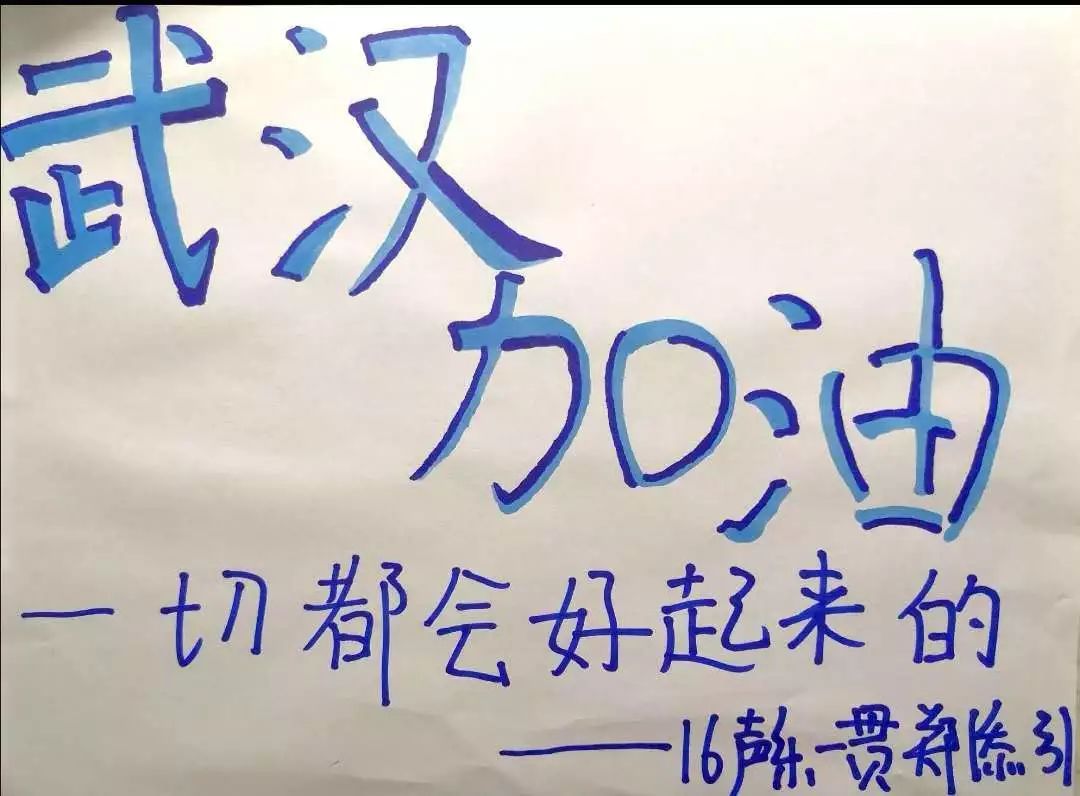 武汉
加油
一切都会好起来的
——16声乐一贯郑添引